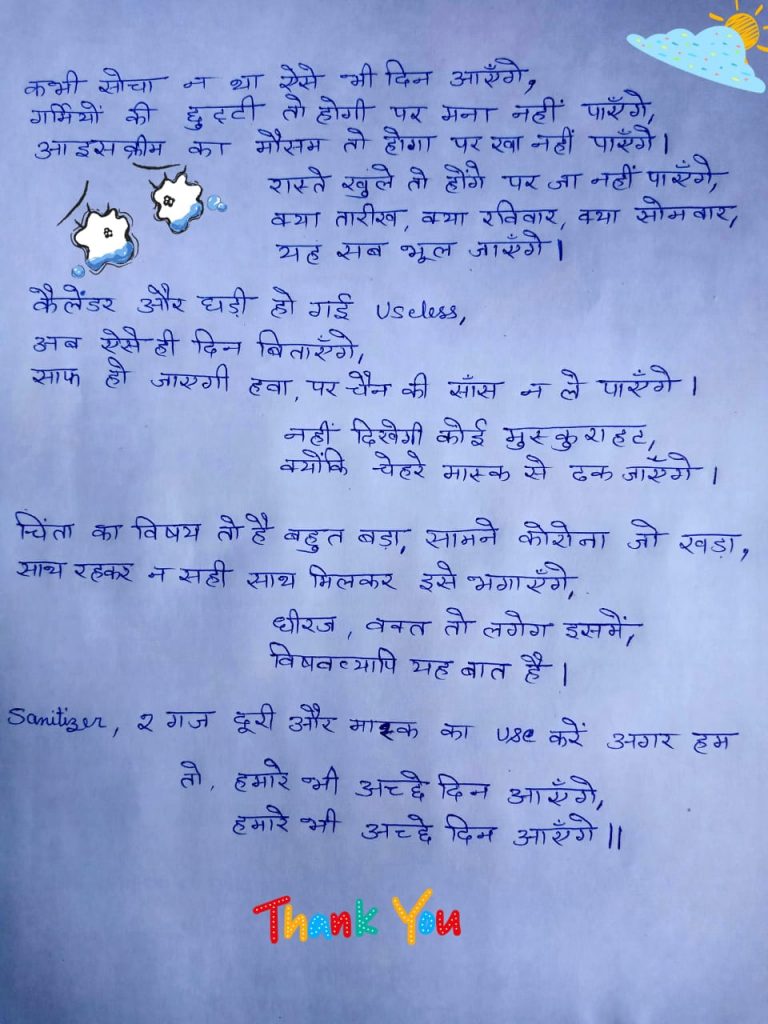 कभी सोचा न था ऐसे भी दिन आएँगे,
गर्मियों की छुट्टी तो होगी पर मना नहीं पाएँगे,
आइसक्रीम का मौसम तो होगा पर खा नहीं पाएँगे।
रास्ते खुले तो होंगे पर जा नहीं पाएँगे,
क्या तारीख, क्या रविवार, क्या सोमवार,
यह सब भूल जाएँगे।
कैलेंडर और घड़ी हो गई useless,
अब ऐसे ही दिन बिताएँगे,
साफ हो जाएगी हवा, पर चैन की साँस न ले पाएँगे।
नहीं दिखेगी कोई मुस्कुराहट,
क्योंकि चेहरे मास्क से ढक जाएँगे।
चिंता का विषय तो है बहुत बड़ा, सामने कोरोना जो खड़ा,
साथ रहकर न सही साथ मिलकर इसे भगाएँगे,
धीरज, वक्त तो लगेग इसमें,
विषवव्यापि यह बात है।
Sanitizer, २ गज दूरी और मास्क का use करें अगर हम
तो, हमारे भी अच्छे दिन आएँगे,
हमारे भी अच्छे दिन आएँगे॥
Thank You